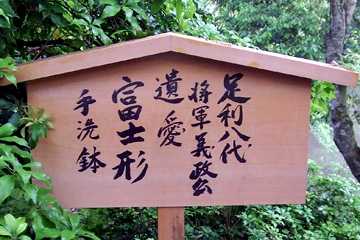 足利八代
将軍義政公
遺愛
富士形
手洗鉢